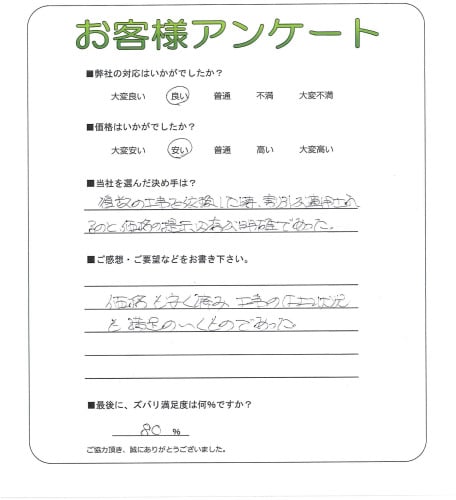 お客様アンケート
■弊社の対応はいかがでしたか？
大変良い 良い 普通 不満 大変不満
■価格はいかがでしたか？
大変安い 安い 普通 高い 大変高い
■当社を選んだ決め手は？
複数の工事を依頼した時、割引が適用され
るのと価格の提示が明確であった。
■ご感想・ご要望などをお書き下さい。
価格も安く済み 工事の仕上状況
も満足のいくものであった
■最後に、ズバリ満足度は何％ですか？
80 %
ご協力頂き、誠にありがとうございました。